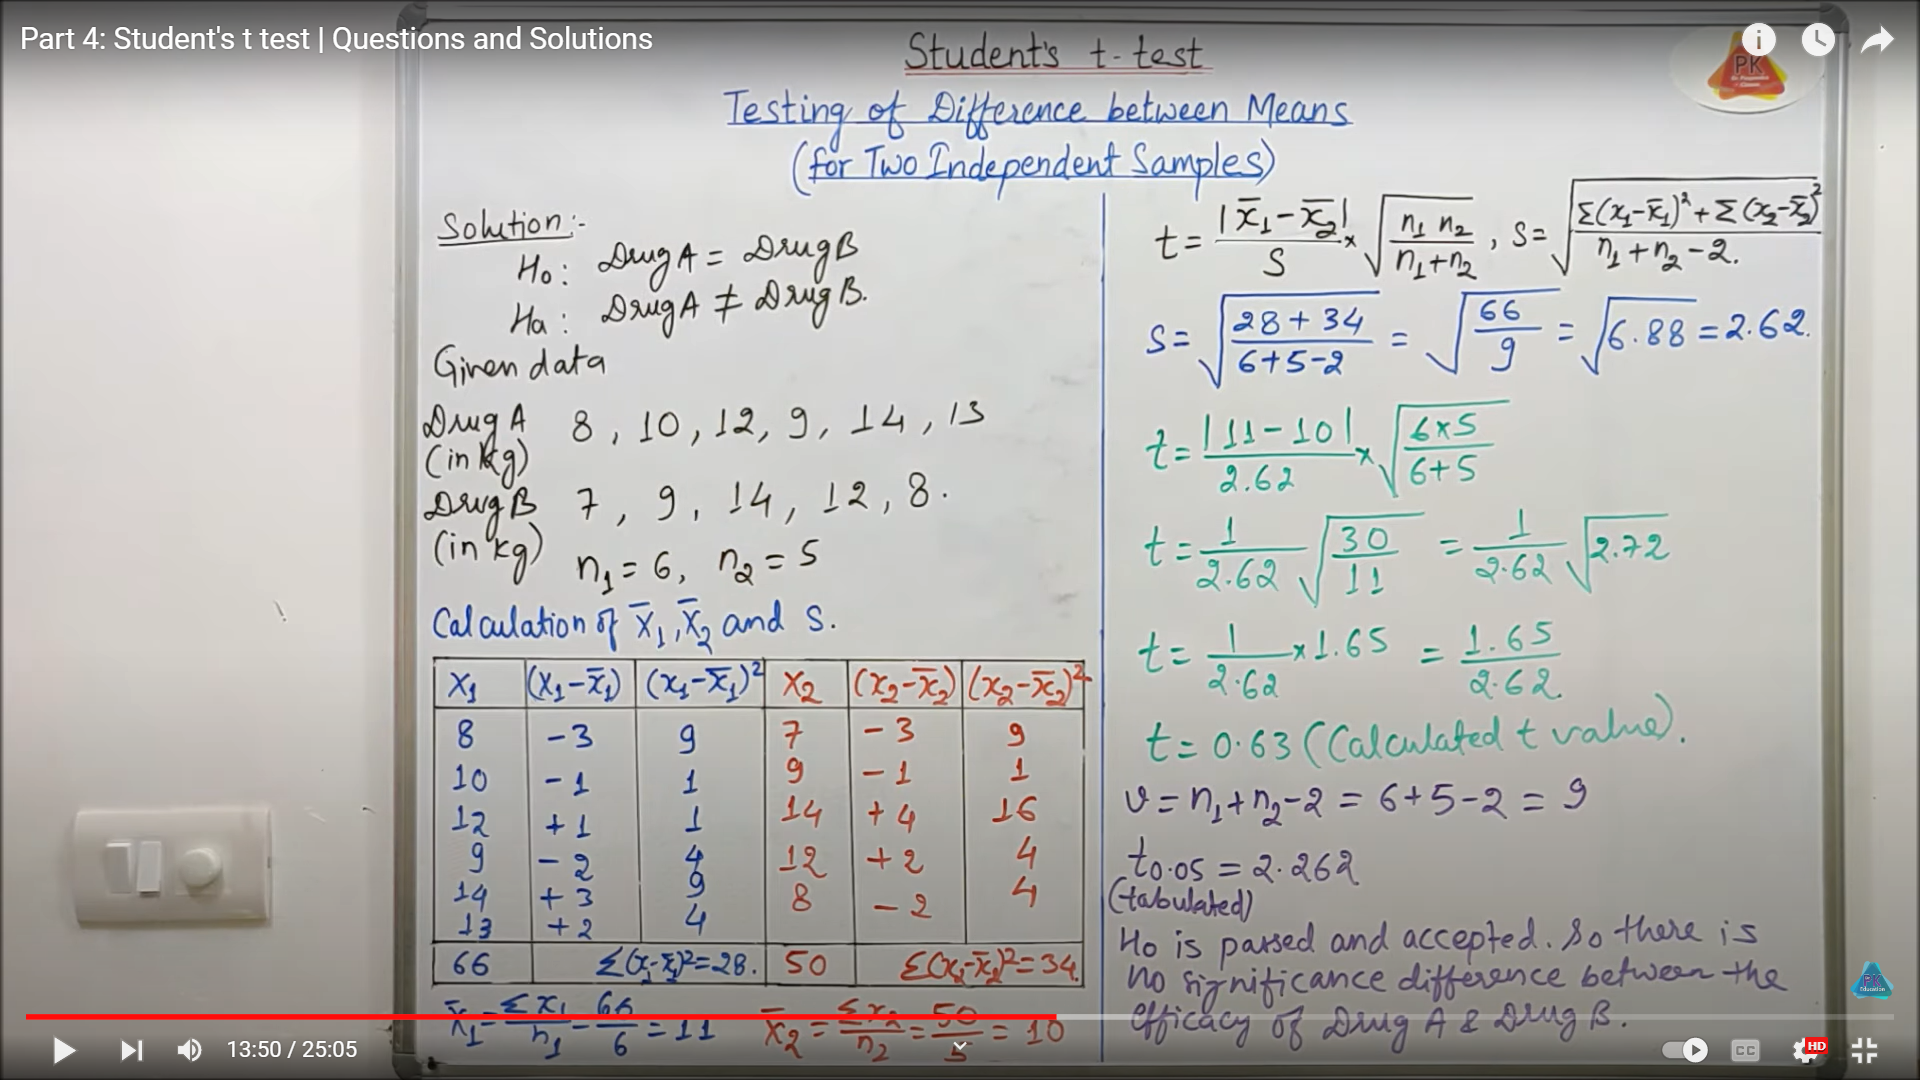 Part 4: Student's t test | Questions and Solutions
Student's t-test
Testing of Difference between Means
(for Two Independent Samples)
PK
Solution:-
H₀: Drug A = Drug B
Ha: Drug A ≠ Drug B.
Given data
Drug A 8, 10, 12, 9, 14, 13
(in kg)
Drug B 7, 9, 14, 12, 8.
(in kg)
n₁ = 6, n₂ = 5
Calculation of x̄₁, x̄₂ and S.
X₁ (X₁-x̄₁) (x₁-x̄₁)² X₂ (x₂-x̄₂) (x₂-x̄₂)²
8 -3 9 7 -3 9
10 -1 1 9 -1 1
12 +1 1 14 +4 16
9 -2 4 12 +2 4
14 +3 9 8 -2 4
13 +2 4
66 Σ(x₁-x̄₁)²=28. 50 Σ(x₂-x̄₂)²=34.
x̄₁ = Σx₁/n₁ = 66/6 = 11 x̄₂ = Σx₂/n₂ = 50/5 = 10
t = |x̄₁-x̄₂|/S × √(n₁ n₂/n₁+n₂), S = √(Σ(x₁-x̄₁)²+Σ(x₂-x̄₂)²/n₁+n₂-2.)
S = √(28+34/6+5-2) = √(66/9) = √6.88 = 2.62.
t = |11-10|/2.62 × √(6×5/6+5)
t = 1/2.62 √(30/11) = 1/2.62 √2.72
t = 1/2.62 × 1.65 = 1.65/2.62.
t = 0.63 (Calculated t value).
v = n₁+n₂-2 = 6+5-2 = 9
t0.05 = 2.262
(tabulated)
Ho is parsed and accepted. So there is
no significance difference between the
efficacy of Drug A & Drug B.
PK
Education
13:50 / 25:05
CC
HD